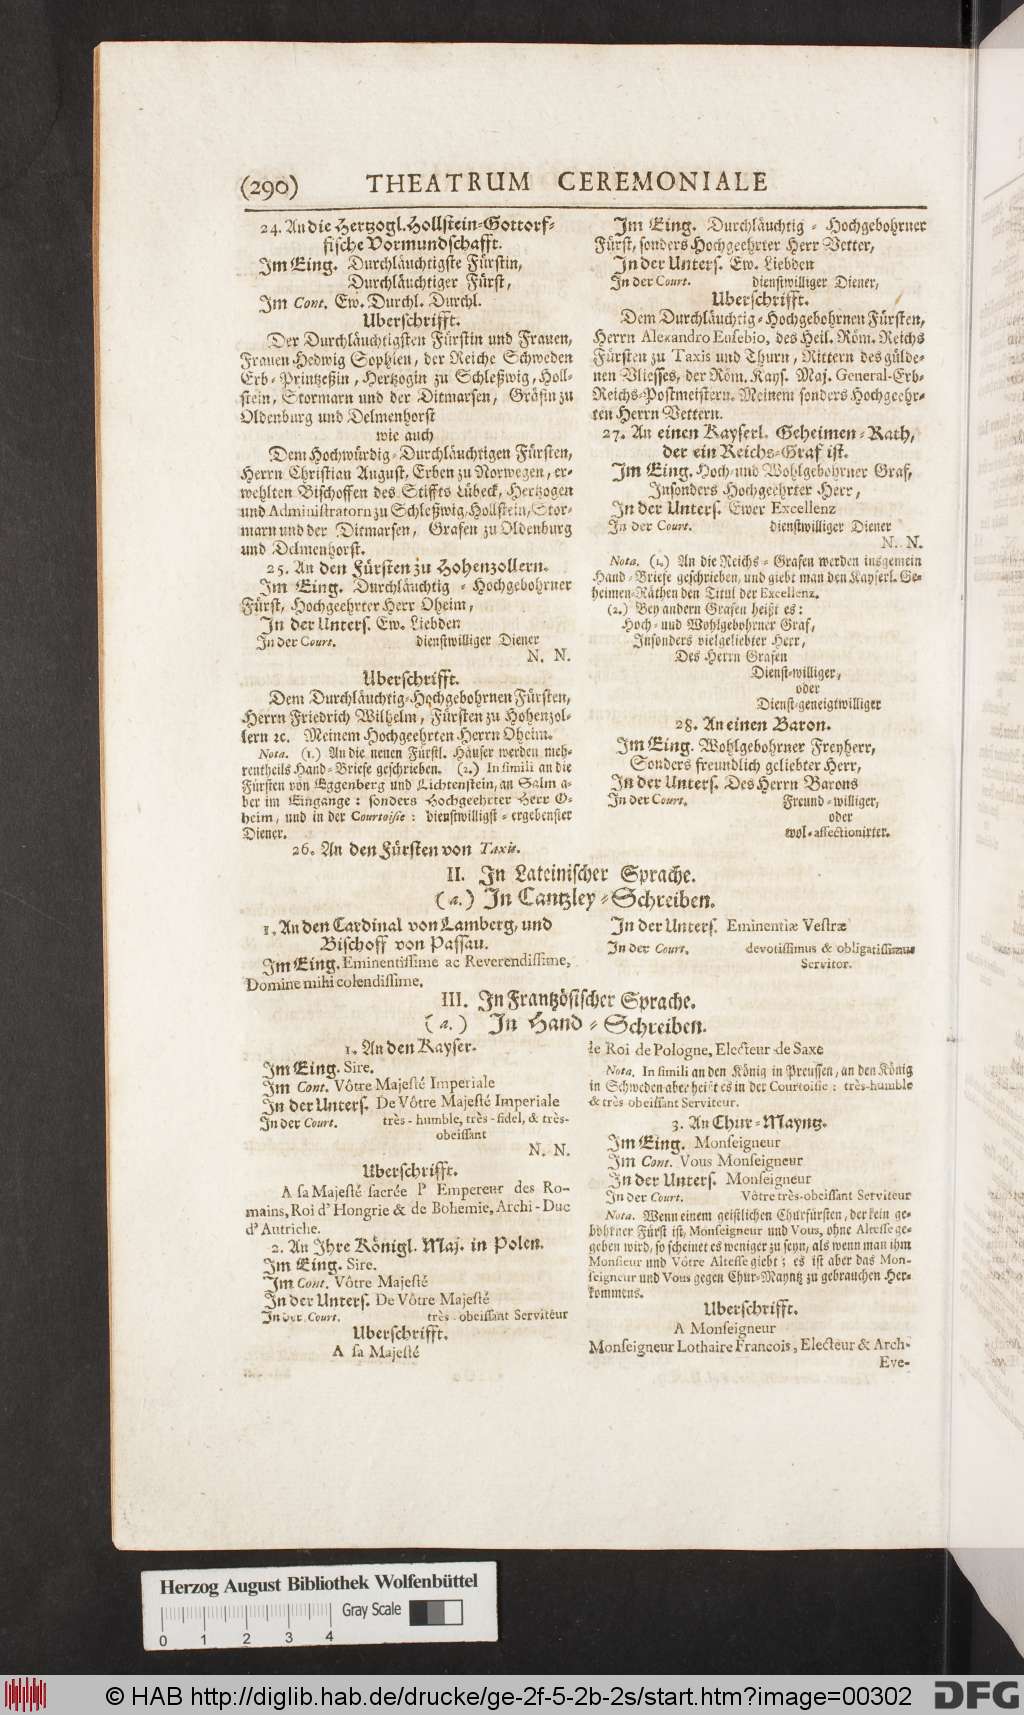 (290) THEATRUM CEREMONIALE
24. An die Hertzogl. Hollstein-Gottorf-
fische Vormundschafft.
Im Eing. Durchläuchtigste Fürstin,
Durchläuchtiger Fürst,
Im Cont. Ew. Durchl. Durchl.
Uberschrifft.
Der Durchläuchtigsten Fürstin und Frauen,
Frauen Hedwig Sophien, der Reiche Schweden
Erb-Printzeßin, Hertzogin zu Schleßwig, Holl-
stein, Stormarn und der Ditmarsen, Gräfin zu
Oldenburg und Delmenhorst
wie auch
Dem Hochwürdig-Durchläuchtigen Fürsten,
Herrn Christian August, Erben zu Norwegen, er-
wehlten Bischoffen des Stiffts Lübeck, Hertzogen
und Administratorn zu Schleßwig, Hollstein, Stor-
marn und der Ditmarsen, Grafen zu Oldenburg
und Delmenhorst.
25. An den Fürsten zu Hohenzollern.
Im Eing. Durchläuchtig-Hochgebohrner
Fürst, Hochgeehrter Herr Oheim,
In der Unters. Ew. Liebden
In der Court. dienstwilliger Diener
N. N.
Uberschrifft.
Dem Durchläuchtig-Hochgebohrnen Fürsten,
Herrn Friedrich Wilhelm, Fürsten zu Hohenzol-
lern ꝛc. Meinem Hochgeehrten Herrn Oheim.
Nota. (1.) An die neuen Fürstl. Häuser werden meh-
rentheils Hand-Briefe geschrieben. (2.) In simili an die
Fürsten von Eggenberg und Lichtenstein, an Salm a-
ber im Eingange: sonders Hochgeehrter Herr O-
heim, und in der Courtoisie: dienstwilligst-ergebenster
Diener.
26. An den Fürsten von Taxis.
Im Eing. Durchläuchtig-Hochgebohrner
Fürst, sonders Hochgeehrter Herr Vetter,
In der Unters. Ew. Liebden
In der Court. dienstwilliger Diener,
Uberschrifft.
Dem Durchläuchtig-Hochgebohrnen Fürsten,
Herrn Alexandro Eusebio, des Heil. Röm. Reichs
Fürsten zu Taxis und Thurn, Rittern des gülde-
nen Vliesses, der Röm. Kays. Maj. General-Erb-
Reichs-Postmeistern. Meinem sonders Hochgeehr-
ten Herrn Vettern.
27. An einen Kayserl. Geheimen-Rath,
der ein Reichs-Graf ist.
Im Eing. Hoch-und Wohlgebohrner Graf,
Insonders Hochgeehrter Herr,
In der Unters. Ewer Excellenz
In der Court. dienstwilliger Diener
N. N.
Nota. (1.) An die Reichs-Grafen werden insgemein
Hand-Briefe geschrieben, und giebt man den Kayserl. Ge-
heimen-Räthen den Titul der Excellenz.
(2.) Bey andern Grafen heißt es:
Hoch-und Wohlgebohrner Graf,
Insonders vielgeliebter Herr,
Des Herrn Grafen
Dienst-williger,
oder
Dienst-geneigtwilliger
28. An einen Baron.
Im Eing. Wohlgebohrner Freyherr,
Sonders freundlich geliebter Herr,
In der Unters. Des Herrn Barons
In der Court. Freund-williger,
oder
wol-affectionirter.
II. In Lateinischer Sprache.
(a.) In Cantzley-Schreiben.
1. An den Cardinal von Lamberg, und
Bischoff von Passau.
Im Eing. Eminentissime ac Reverendissime,
Domine mihi colendissime.
In der Unters. Eminentiæ Vestræ
In der Court. devotissimus & obligatissimus
Servitor.
III. In Frantzösischer Sprache.
(a.) In Hand-Schreiben.
1. An den Kayser.
Im Eing. Sire.
Im Cont. Vôtre Majesté Imperiale
In der Unters. De Vôtre Majesté Imperiale
In der Court. très-humble, très-fidel, & très-
obeissant
N. N.
Uberschrifft.
A sa Majesté sacrée l' Empereur des Ro-
mains, Roi d' Hongrie & de Bohemie, Archi-Duc
d' Autriche.
2. An Ihre Königl. Maj. in Polen.
Im Eing. Sire.
Im Cont. Vôtre Majesté
In der Unters. De Vôtre Majesté
In der Court. très-obeissant Serviteur
Uberschrifft.
A sa Majesté
le Roi de Pologne, Electeur de Saxe
Nota. In simili an den König in Preussen, an den König
in Schweden aber heißt es in der Courtoisie: très-humble
& très obeissant Serviteur.
3. An Chur-Mayntz.
Im Eing. Monseigneur
Im Cont. Vous Monseigneur
In der Unters. Monseigneur
In der Court. Vôtre très-obeissant Serviteur
Nota. Wenn einem geistlichen Churfürsten, der kein ge-
bohrner Fürst ist, Monseigneur und Vous, ohne Altesse ge-
geben wird, so scheinet es weniger zu seyn, als wenn man ihm
Monsieur und Vôtre Altesse giebt; es ist aber das Mon-
seigneur und Vous gegen Chur-Mayntz zu gebrauchen Her-
kommens.
Uberschrifft.
A Monseigneur
Monseigneur Lothaire Francois, Electeur & Arch-
Eve-
Herzog August Bibliothek Wolfenbüttel
Gray Scale
0 1 2 3 4
© HAB http://diglib.hab.de/drucke/ge-2f-5-2b-2s/start.htm?image=00302
DFG